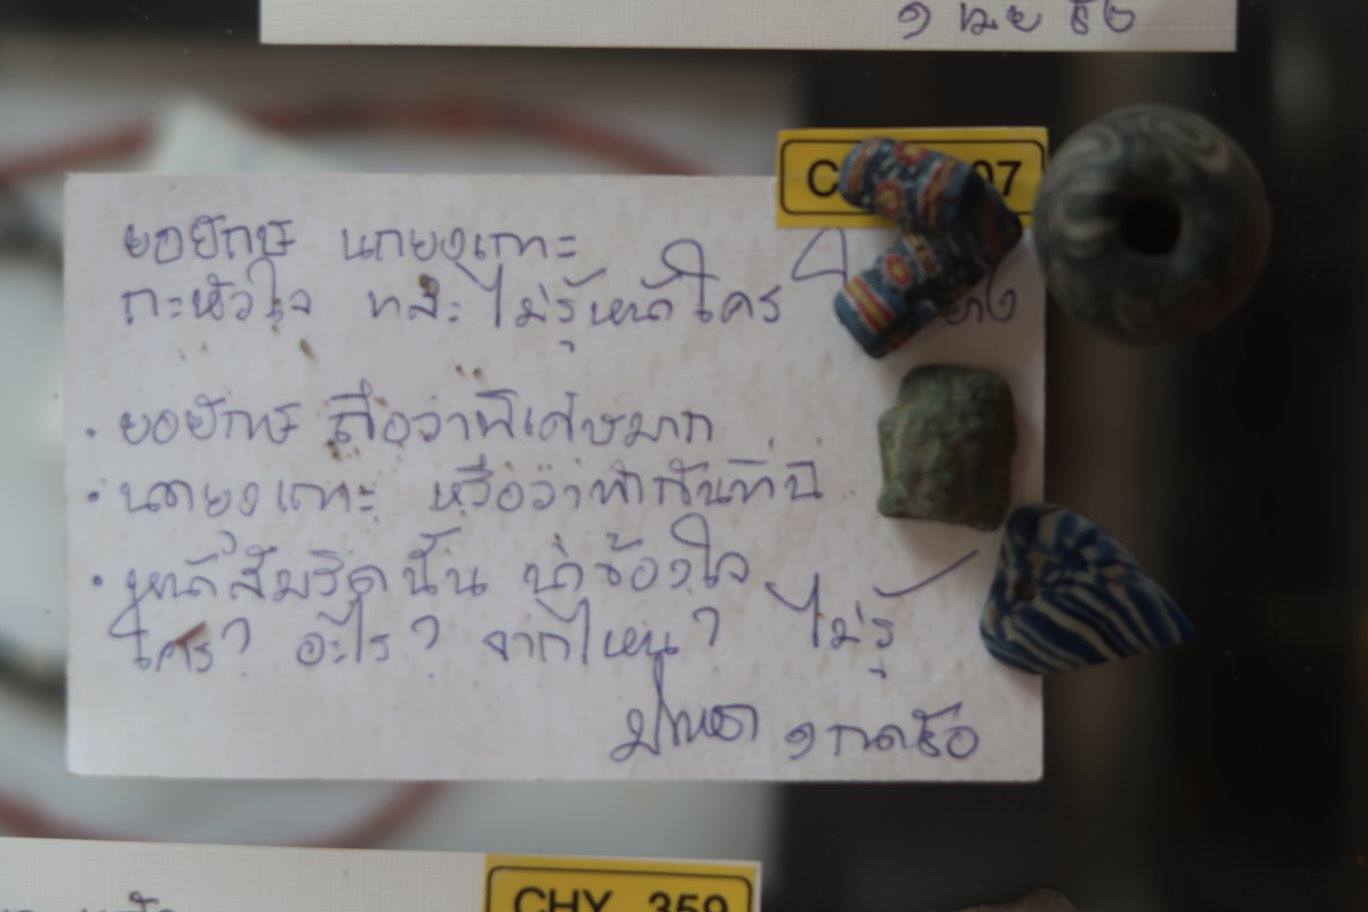 ๑ เมย ๕๖
07
ยอยักษ์ นกยูงเกาะ
กะหัวใจ และ ไม่รู้หน้าใคร
• ยอยักษ์ ถือว่าพิเศษมาก
• นกยูงเกาะ หรือว่าทำกันที่นี่
• หน้าสัมริดนั้น น่าข้องใจ
ใคร? อะไร? จากไหน? ไม่รู้
CHY 359